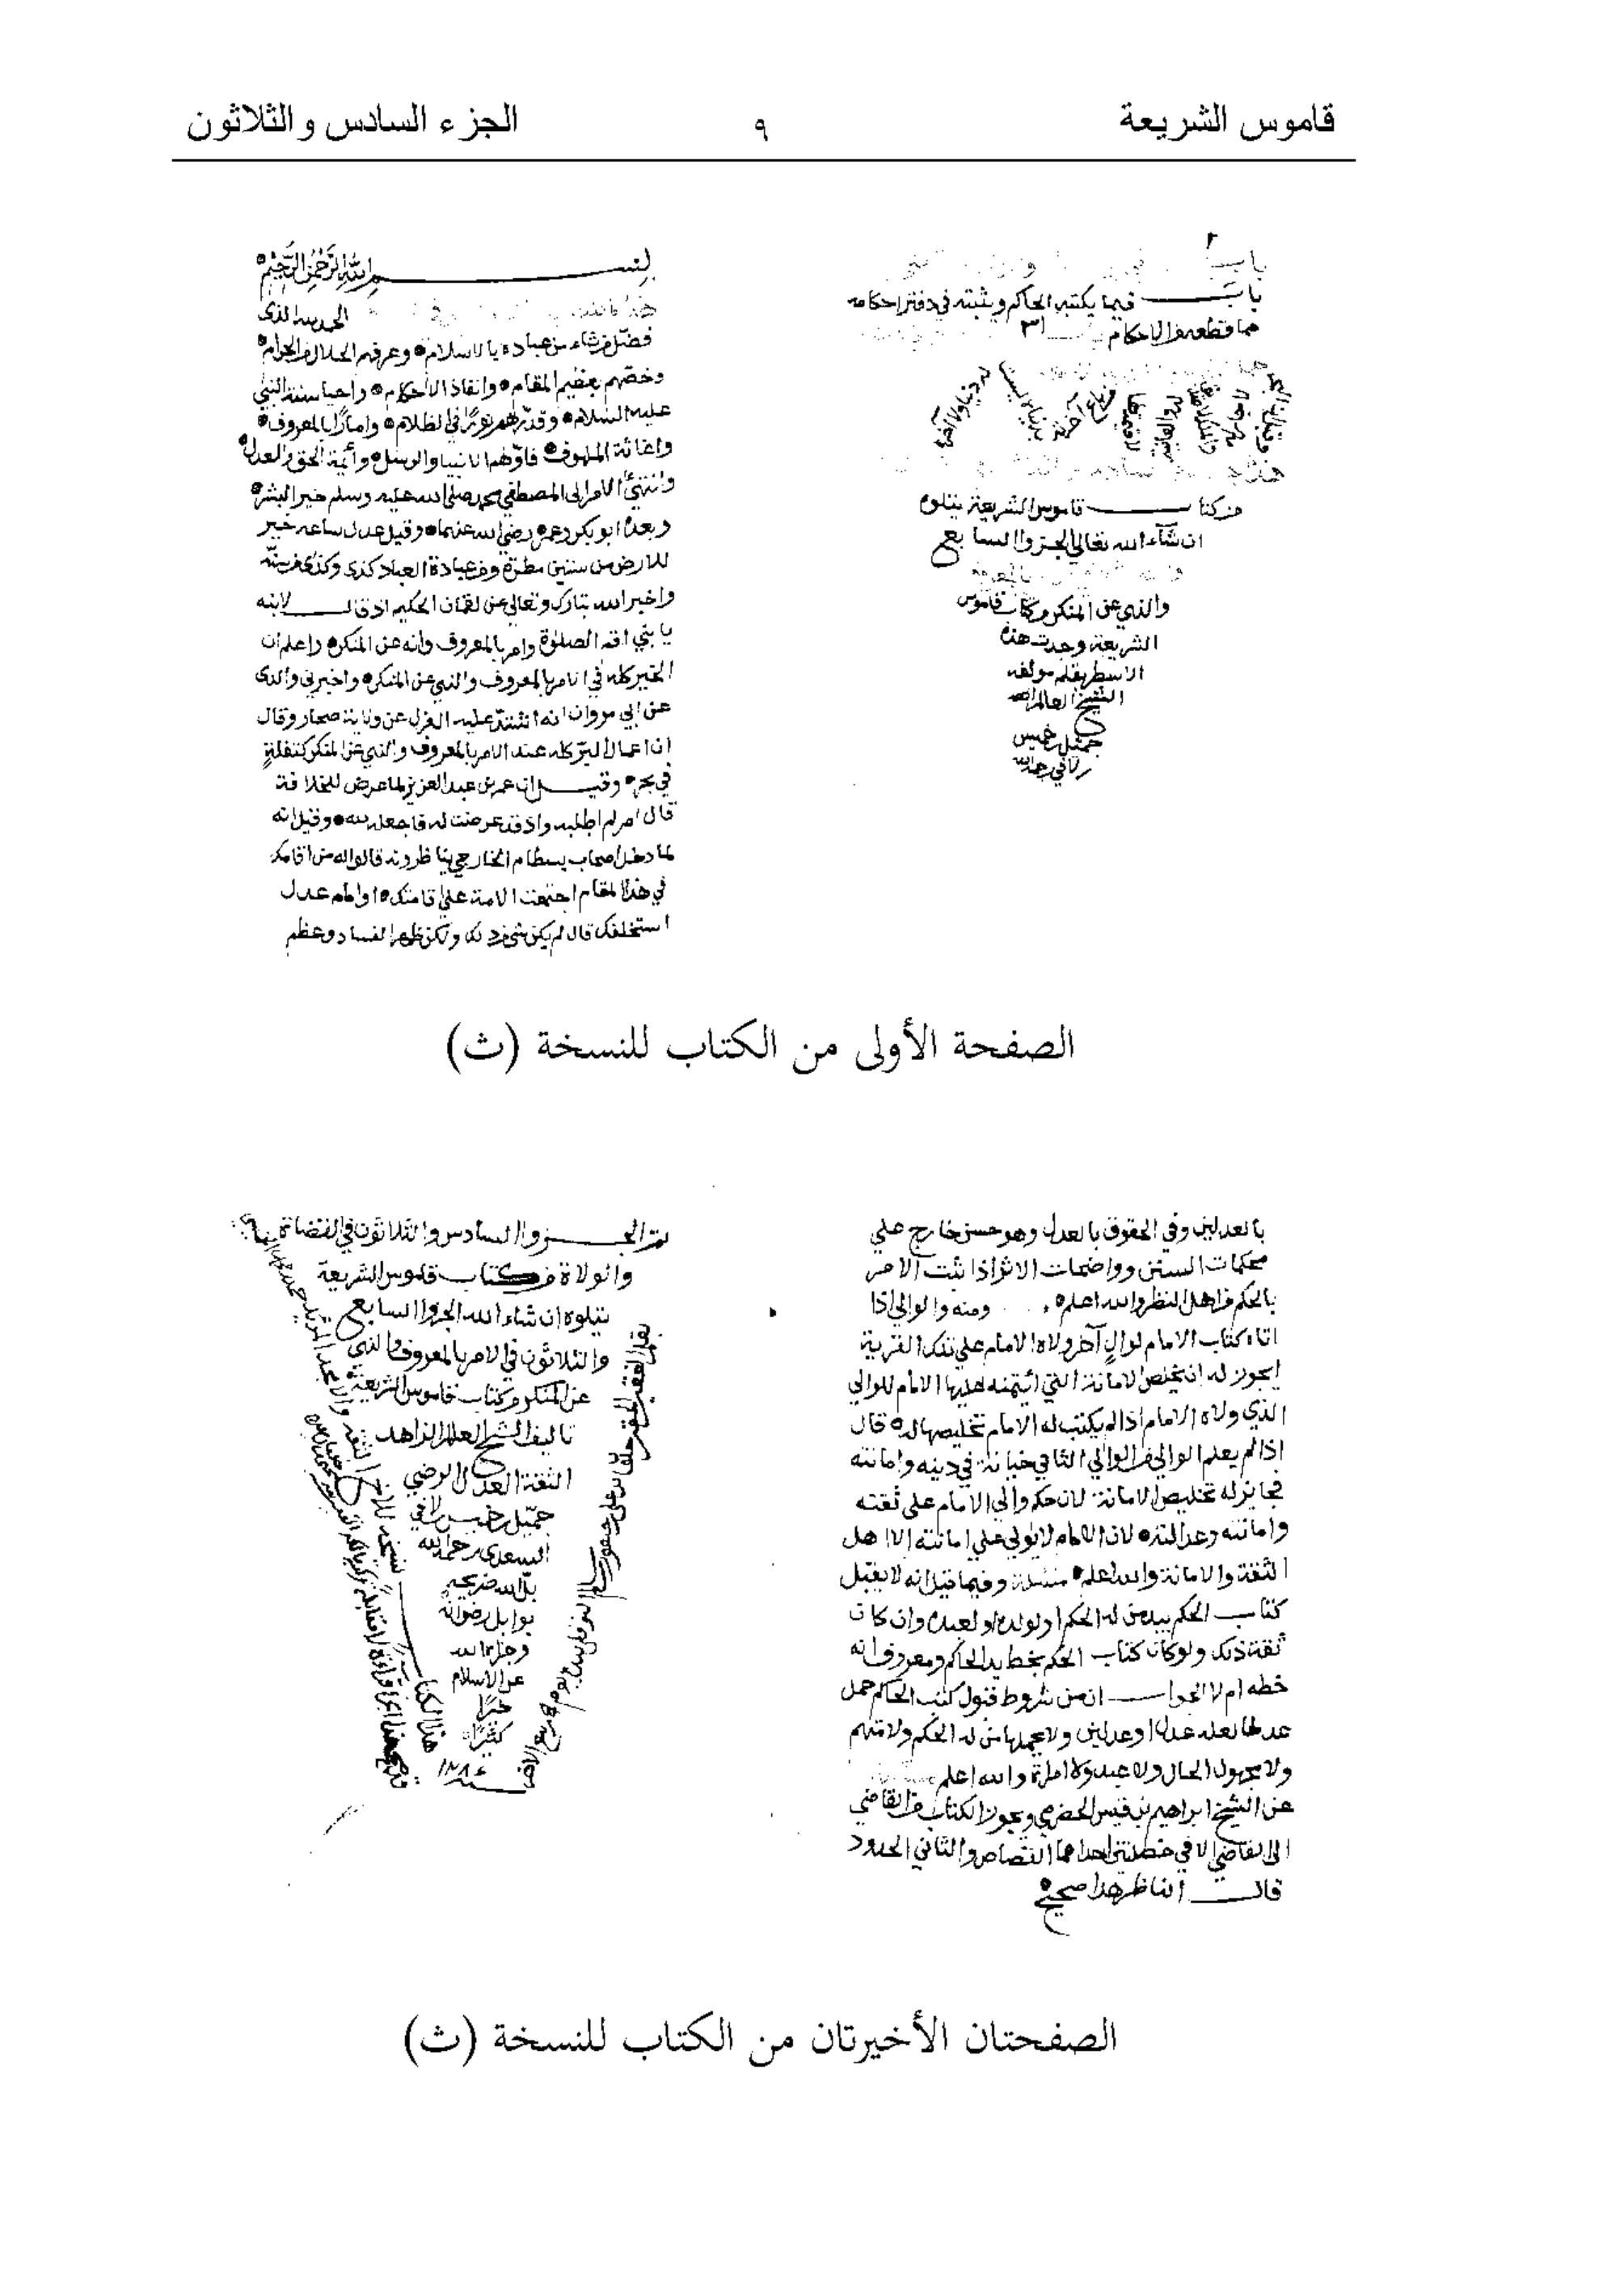 قاموس الشريعة
٩
الجزء السادس والثلاثون
باب
باب فيما يكتبه الحاكم ويثبته في دفتر احكامه
مما قطعه الاحكام ٣١
من كتاب قاموس الشريعة يتلوه
ان شآء الله تعالى الجزؤ السابع
والنهي عن المنكر من كتاب قاموس
الشريعة وجدت هذه
الاسطر بقلم مولفه
الشيخ العالم
جميل بن خميس
بسم الله الرحمن الرحيم
الحمد لله الذى
فضل من شاء من عباده بالاسلام وعرفهم الحلال والحرام
وخصهم بعظيم المقام وانفاذ الاحكام واحيا سنة النبي
عليه السلام وقدرهم نورًا في الظلام وامارًا بالمعروف
واغاثة الملهوف فاولهم الانبيا والرسل وأئمة الحق والعدل
وانتهى الامر الى المصطفى محمد صلى الله عليه وسلم خير البشر
وبعده ابو بكر وعمر رضي الله عنهما وقيل عدل ساعة خير
للارض من سنين مطرة ومن عبادة العباد كذى وكذى من سنة
واخبر الله تبارك وتعالى عن لقمان الحكيم اذ قال لابنه
يا بني اقم الصلوة وامر بالمعروف وانه عن المنكر واعلم ان
الخير كله في الامر بالمعروف والنهي عن المنكر واخبرني والدى
عن ابي مروان انه اشتد عليه العزل عن ولاية صحار وقال
ان اعمال البر كله عند الامر بالمعروف والنهي عن المنكر كتفلة
في بحر وقيل ان عمر بن عبد العزيز لما عرض للخلافة
قال امر لم اطلبه واذ قد عرضت له فاجعله لله وقيل انه
لما دخل اصحاب بسطام الخارجي يناظرونه قالوا له من اقامك
في هذا المقام اجتمعت الامة على اقامتك او امام عدل
استخلفك قال لم يكن شي من ذلك ولكن ظهر الفساد وعظم
الصفحة الأولى من الكتاب للنسخة (ث)
بالعدلين وفي الحقوق بالعدل وهو حسن خارج على
محكمات السنن وواضحات الاثر اذا ثبت الامر
بالحكم من اهل النظر والله اعلم ومنه والوالي اذا
اتاه كتاب الامام لوالٍ آخر ولاه الامام على تلك القرية
ايجوز له ان يخلص الامانة التي ائتمنه عليها الامام للوالي
الذي ولاه الامام اذا لم يكتب له الامام تخليصها له قال
اذا لم يعلم الوالي من الوالي الثاني خيانة في دينه وامانته
فجايز له تخليص الامانة لان حكم والي الامام على ثقته
وامانته وعدالته لان الامام لا يولي على امانته الا اهل
الثقة والامانة والله اعلم مسئلة وفيما قيل انه لا يقبل
كتاب الحكم بيد من له الحكم او لولده او لعبده وان كان
ثقة ذلك ولو كان كتاب الحكم بخط يد الحاكم ومعروف انه
خطه ام لا الجواب ان من شروط قبول كتب الحاكم حمل
عدلها لعله عدل او عدلين ولا يحملها من له الحكم ولا متهم
ولا مجهول الحال ولا عبد ولا امراة والله اعلم
عن الشيخ ابراهيم بن قيس الحضرمي ويجوز الكتاب من القاضي
الى القاضي الا في خصلتين احداهما القصاص والثاني الحدود
قال الناظر هذا صحيح
تم الجزؤ السادس والثلاثون في القضاة
والولاة من كتاب قاموس الشريعة
يتلوه ان شاء الله الجزؤ السابع
والثلاثون في الامر بالمعروف والنهي
عن المنكر من كتاب قاموس الشريعة
تاليف الشيخ العالم الزاهد
الثقة العدل الرضي
جميل بن خميس بن لافي
السعدي رحمه الله
بل الله ضريحه
بوابل رضوانه
وجزاه الله
عن الاسلام
خيرًا
كثيرًا
الصفحتان الأخيرتان من الكتاب للنسخة (ث)